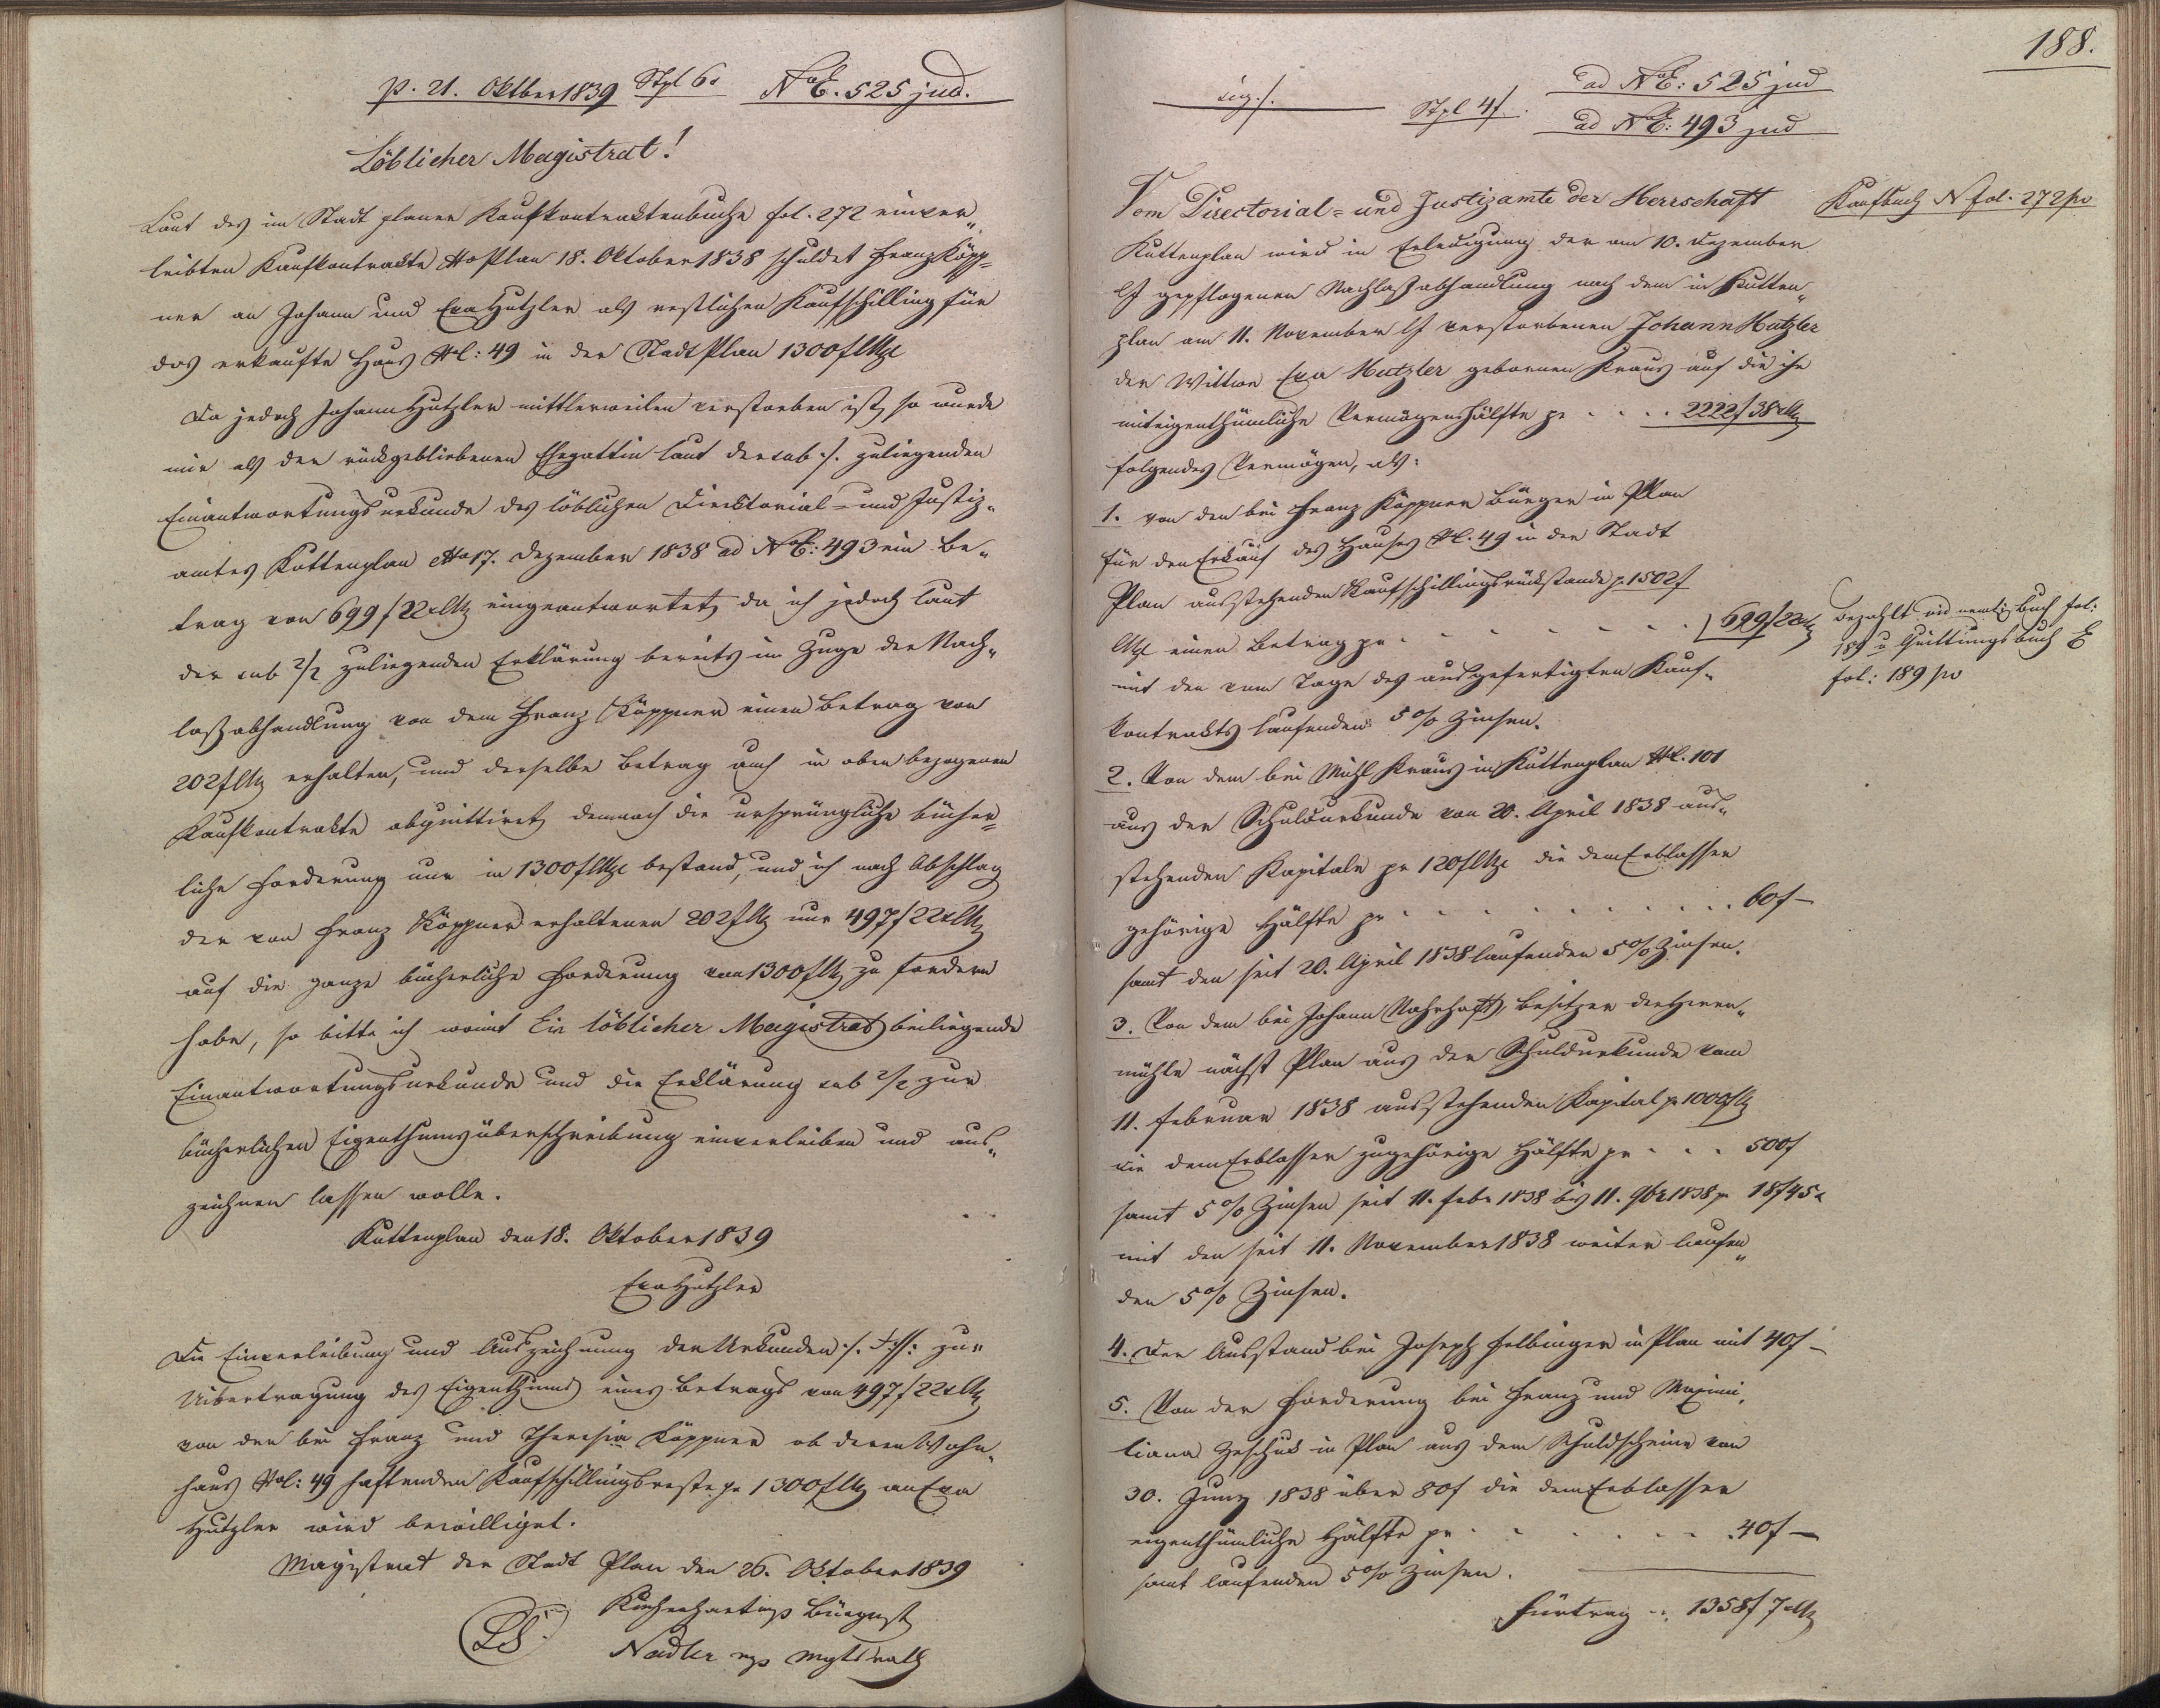 p. 21. Oktber 1839 Stpl 6x NoE. 525 jud.
Löblicher Magistrat!
Laut des im Stadt planer Kaufkontraktenbuche fol. 272 einver„
leibten Kaufkontrakte dto Plan 18. Oktober 1838 schuldet Franz Köpp=
ner an Johann und Eva Hutzler als restlichen Kaufschilling für
das erkaufte Haus NC: 49 in der Stadt Plan 1300 f CMze
Da jedoch Johann Hutzler mittlerweilen verstorben ist, so wurde
mir als der rückgebliebenen Ehegattin laut der sub ./. zuliegenden
Einantwortungsurkunde des löblichen Direktorial- und Justiz„
amtes Kuttenplan dto 17. Dezember 1838 ad NoE: 493 ein Be„
trag von 699 f 22 x CMz eingeantwortet, da ich jedoch laut
der sub 2/. zuliegenden Erklärung bereits im Zuge der Nach„
laßabhandlung von dem Franz Köppner einen Betrag von
202 f CMz erhalten, und derselbe Betrag auch in oben bezogenen
Kaufkontrakte abquittiret, demnach die ursprüngliche bücher=
liche Forderung nur in 1300 f CMze bestand, und ich nach Abschlag
der von Franz Köppner erhaltenen 202 f CMz nur 497 f 22 x CMz
auf die ganze bücherliche Forderung von 1300 f CMz zu fordern
habe, so bitte ich womit Ein löblicher Magistrat beiliegende
Einantwortungsurkunde und die Erklärung sub 2/. zur
bücherlichen Eigenthumsüberschreibung einverleiben und aus„
zeichnen lassen wolle.
Kuttenplan den 18. Oktober 1839
Eva Hutzler
Die Einverleibung und Auszeichnung der Urkunden ./. zur
Uibertragung des Eigenthums eines Betrags von 497 f 22 x CMz
von den bei Franz und Theresia Köppner ob deren Wohn„
haus NC: 49 haftenden Kaufschillingsreste pr 1300 f CMz an Eva
Hutzler wird bewilliget.
Magistrat der Stadt Plan den 26. Oktober 1839
LS. Bürgmst
Nadler mp Mgtsrath
188.
sig. ./. Stpl 4 f. ad NoE: 525 jud
ad NoE: 493 jud
Vom Directorial= und Justizamte der Herrschaft
Kuttenplan wird in Erledigung der am 10. Dezember
lJ gepflogenen Nachlaßabhandlung nach dem in Kutten„
plan am 11. November lJ verstorbenen Johann Hutzler
der Wittwe Eva Hutzler gebornen Kraus auf die ihr
miteigenthümliche Vermögenshälfte pr . . . . 2222 f 38 x CMz
folgendes Vermögen, als:
1. von den bei Franz Köppner Bürger in Plan
für den Erkauf des Hauses NC. 49 in der Stadt
Plan ausstehenden Kaufschillingsrückstande p. 1502 f
CMze einen Betrag pr . . . . . . . 699 f 22 x CMz
mit den vom Tage des ausgefertigten Kauf„
kontrakts laufenden 5 % Zinsen.
2. Von dem bei Michl Kraus in Kuttenplan NC. 101
aus der Schuldurkunde von 20. April 1838 aus„
stehenden Kapitale pr 120 f CMze die dem Erblasser
gehörige Hälfte pr . . . . . . . . . . 60 f –
samt den seit 20. April 1838 laufenden 5 % Zinsen.
3. Von dem bei Johann Nahrhaft, Besitzer der Herrn„
mühle nächst Plan aus der Schuldurkunde vom
11. Februar 1838 ausstehenden Kapital p. 1000 f CMz
die dem Erblasser zugehörige Hälfte pr . . . 500 f
samt 5 % Zinsen seit 11. Febr 1838 bis 11. 9br 1838 p. 18 f 45 x
mit den seit 11. November 1838 weiter laufen„
den 5 % Zinsen.
4. Der Ausstand bei Joseph Felbinger in Plan mit 40 f –
5. Von der Forderung bei Franz und Maximi„
liana in Plan aus dem Schuldscheine von
30. Juny 1838 über 80 f die dem Erblasser
eigenthümliche Hälfte pr . . . . . . . 40 f –
samt laufenden 5 % Zinsen.
Fürtrag . . 1358 f 7 x CMz
Kaufbuch N fol. 272 pv
Bezahlt vid Buch fol:
189 u Quittungsbuch E
fol: 189 pv